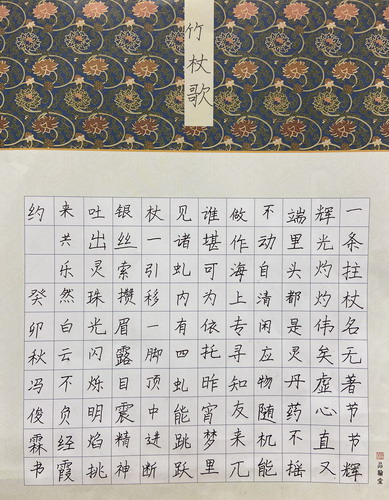 竹杖歌
一条拄杖名无著节节辉
辉光灼灼伟矣虚心直又
端里头都是灵丹药不摇
不动自清闲应物随机能
做作海上专寻知友来兀
谁堪可为依托昨宵梦里
见诸虬内有四虬能跳跃
杖一引移一脚顶中进断
银丝索攒眉露目震精神
吐出灵珠光闪烁明焰挑
来共乐然白云不负经霞
约 癸卯秋冯俊霖书
品翰堂